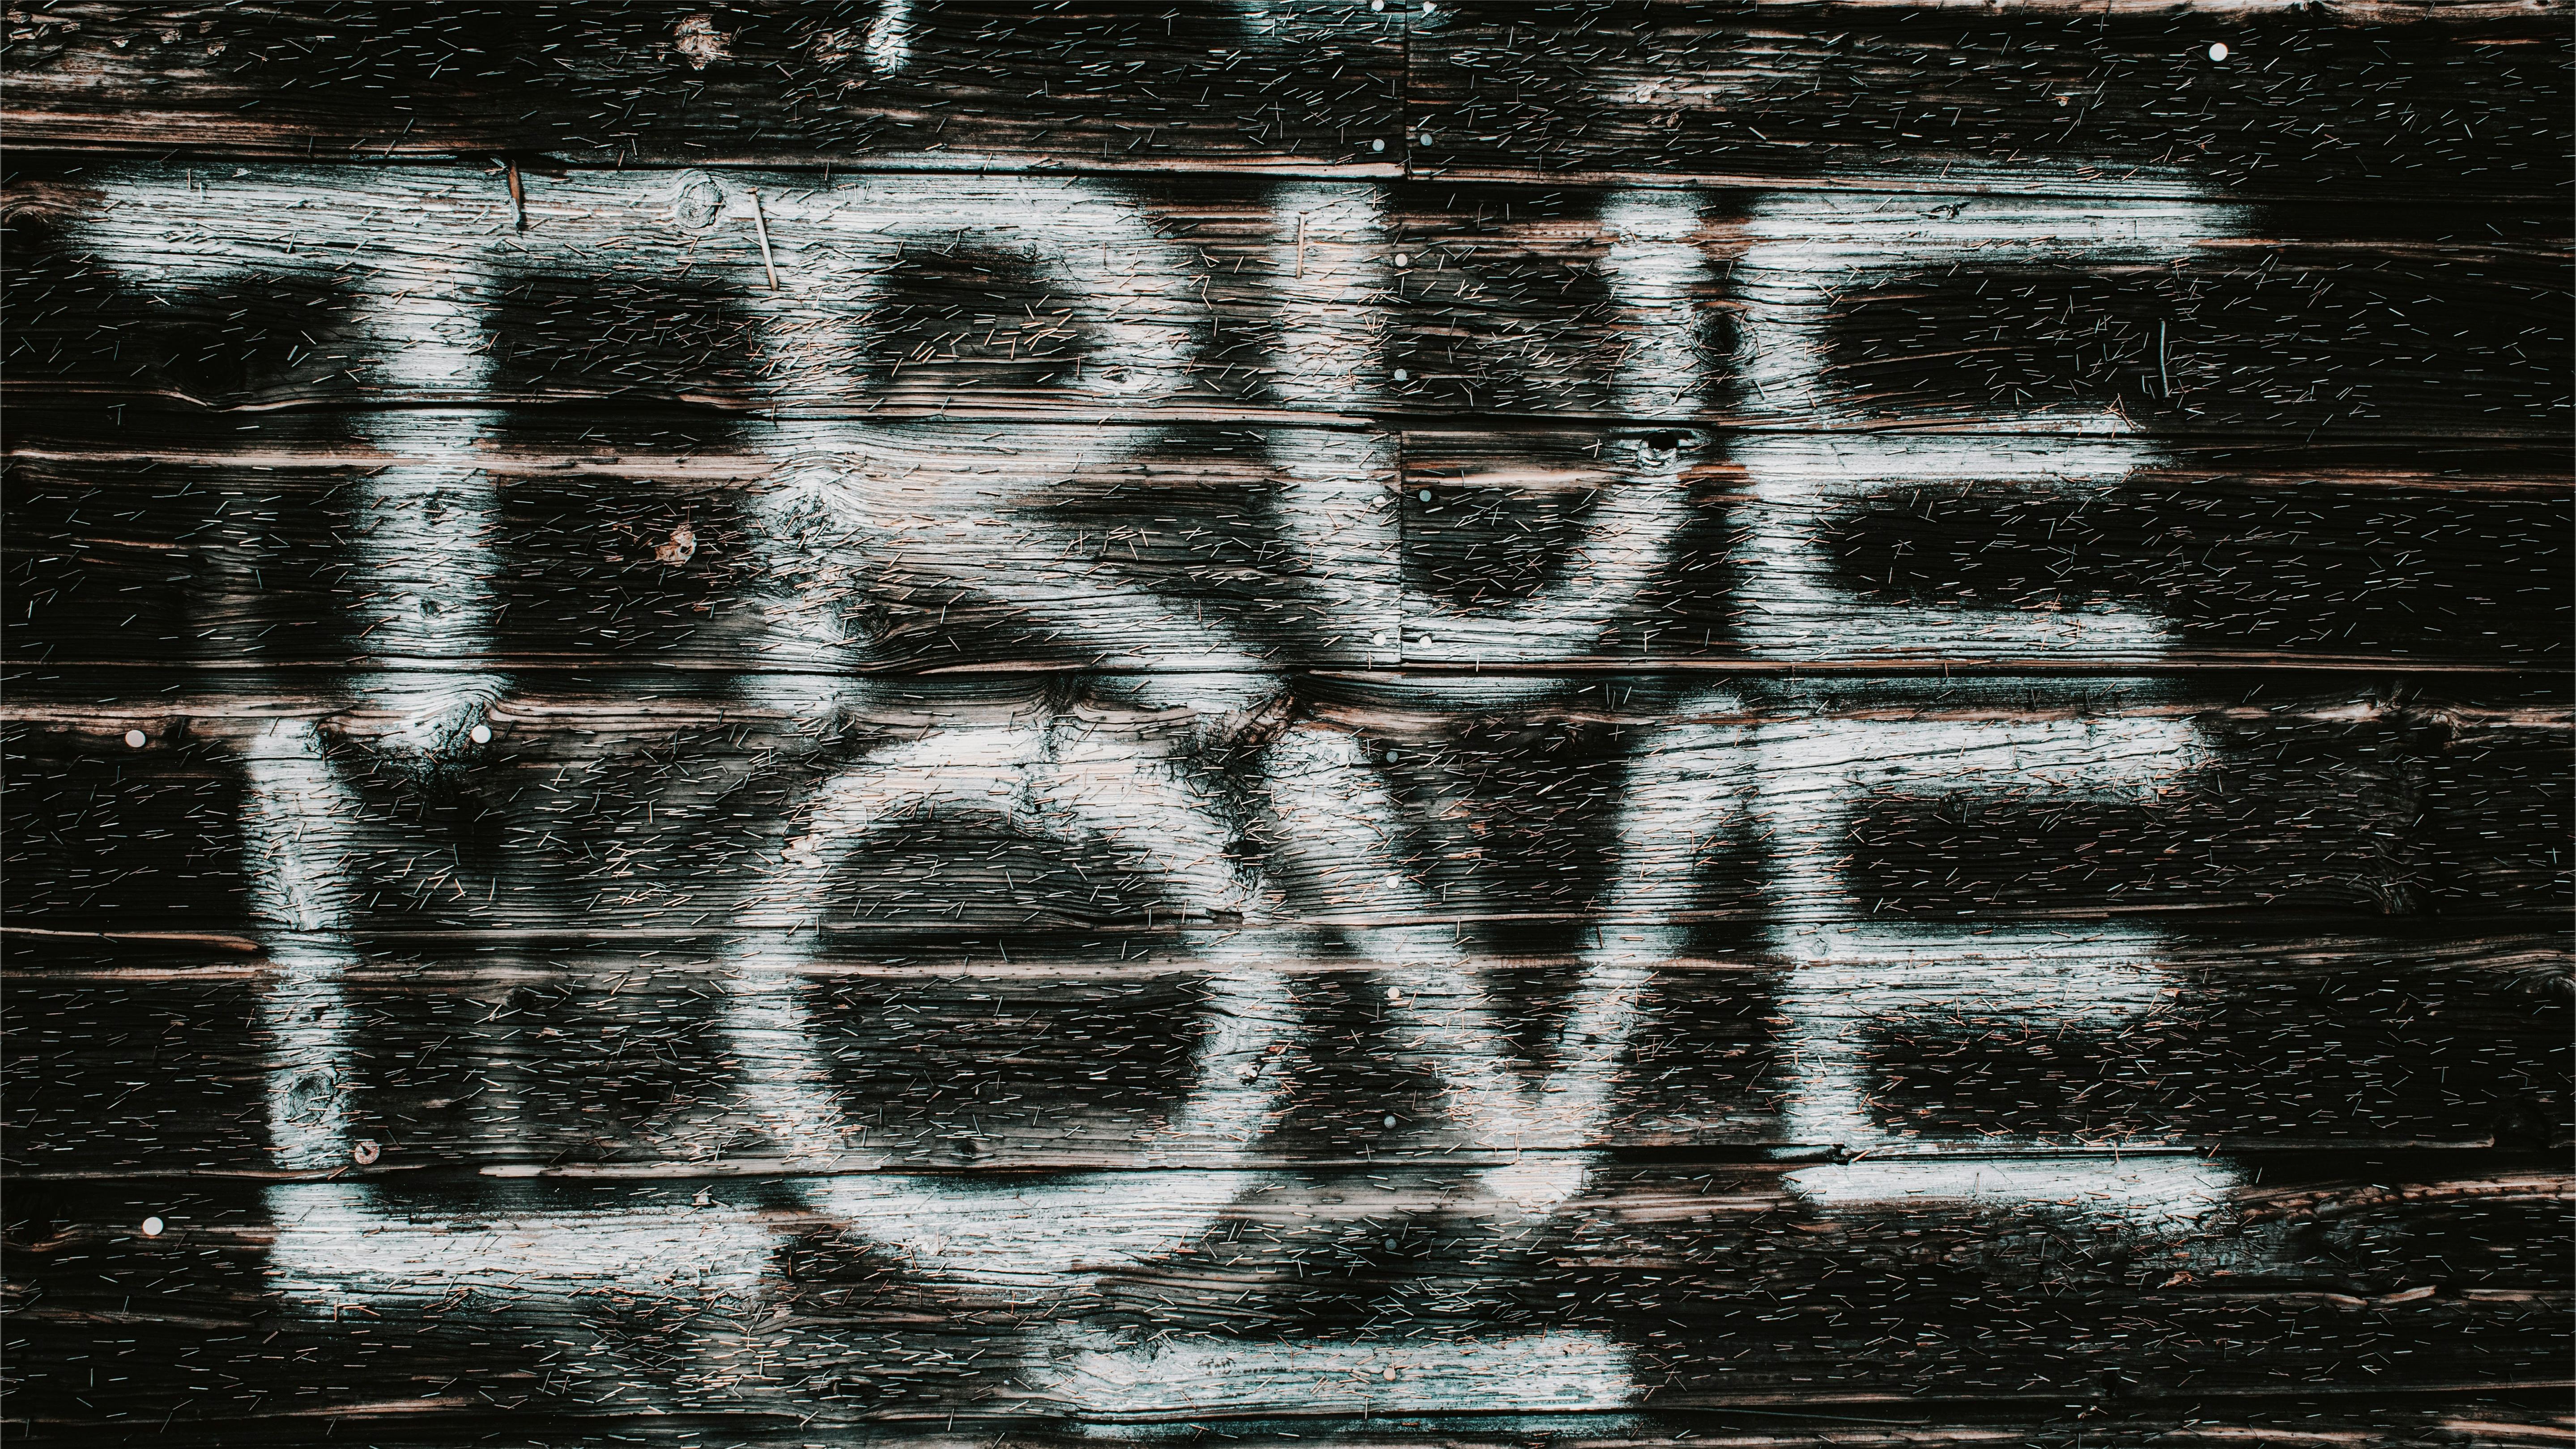 TRUE
LOVE